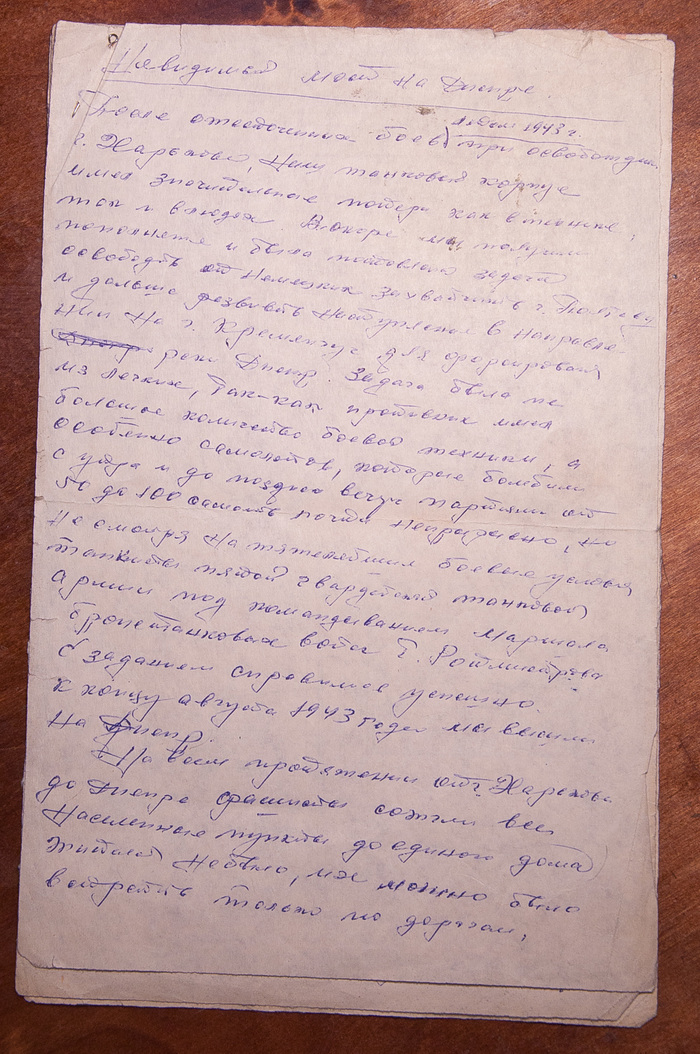 Невидимый мост на Днепре
летом 1943 г.
После ожесточенных боев при освобожден.
г. Харькова, Наш танковый корпус
имел значительные потери как в технике,
так и в людях. Вскоре мы получили
пополнение и была поставлена задача
освободить от Немецких захватчиков г. Полтаву
и дальше развивать Наступление в направле-
нии на г. Кременчуг для форсирования
реки Днепр. Задача была не
из легких, Так-как противник имел
большое количество боевой техники, а
особенно самолетов, которые бомбили
с утра и до поздна вечера партиями от
50 до 100 самолет. почти непрерывно, но
Не смотря на тяжелейшие боевые условия,
танкисты пятой Гвардейской танковой
армии под командыванием Маршала
бронетанковых войск Т. Ротмистрова
с заданием справились успешно.
К концу августа 1943 года мы вышли
на Днепр.
На всем протяжении от г. Харькова
до Днепра фашисты сожгли все
Населенные пункты до единого дома
Жителей небыло, их можно было
встретить только по дорогам,